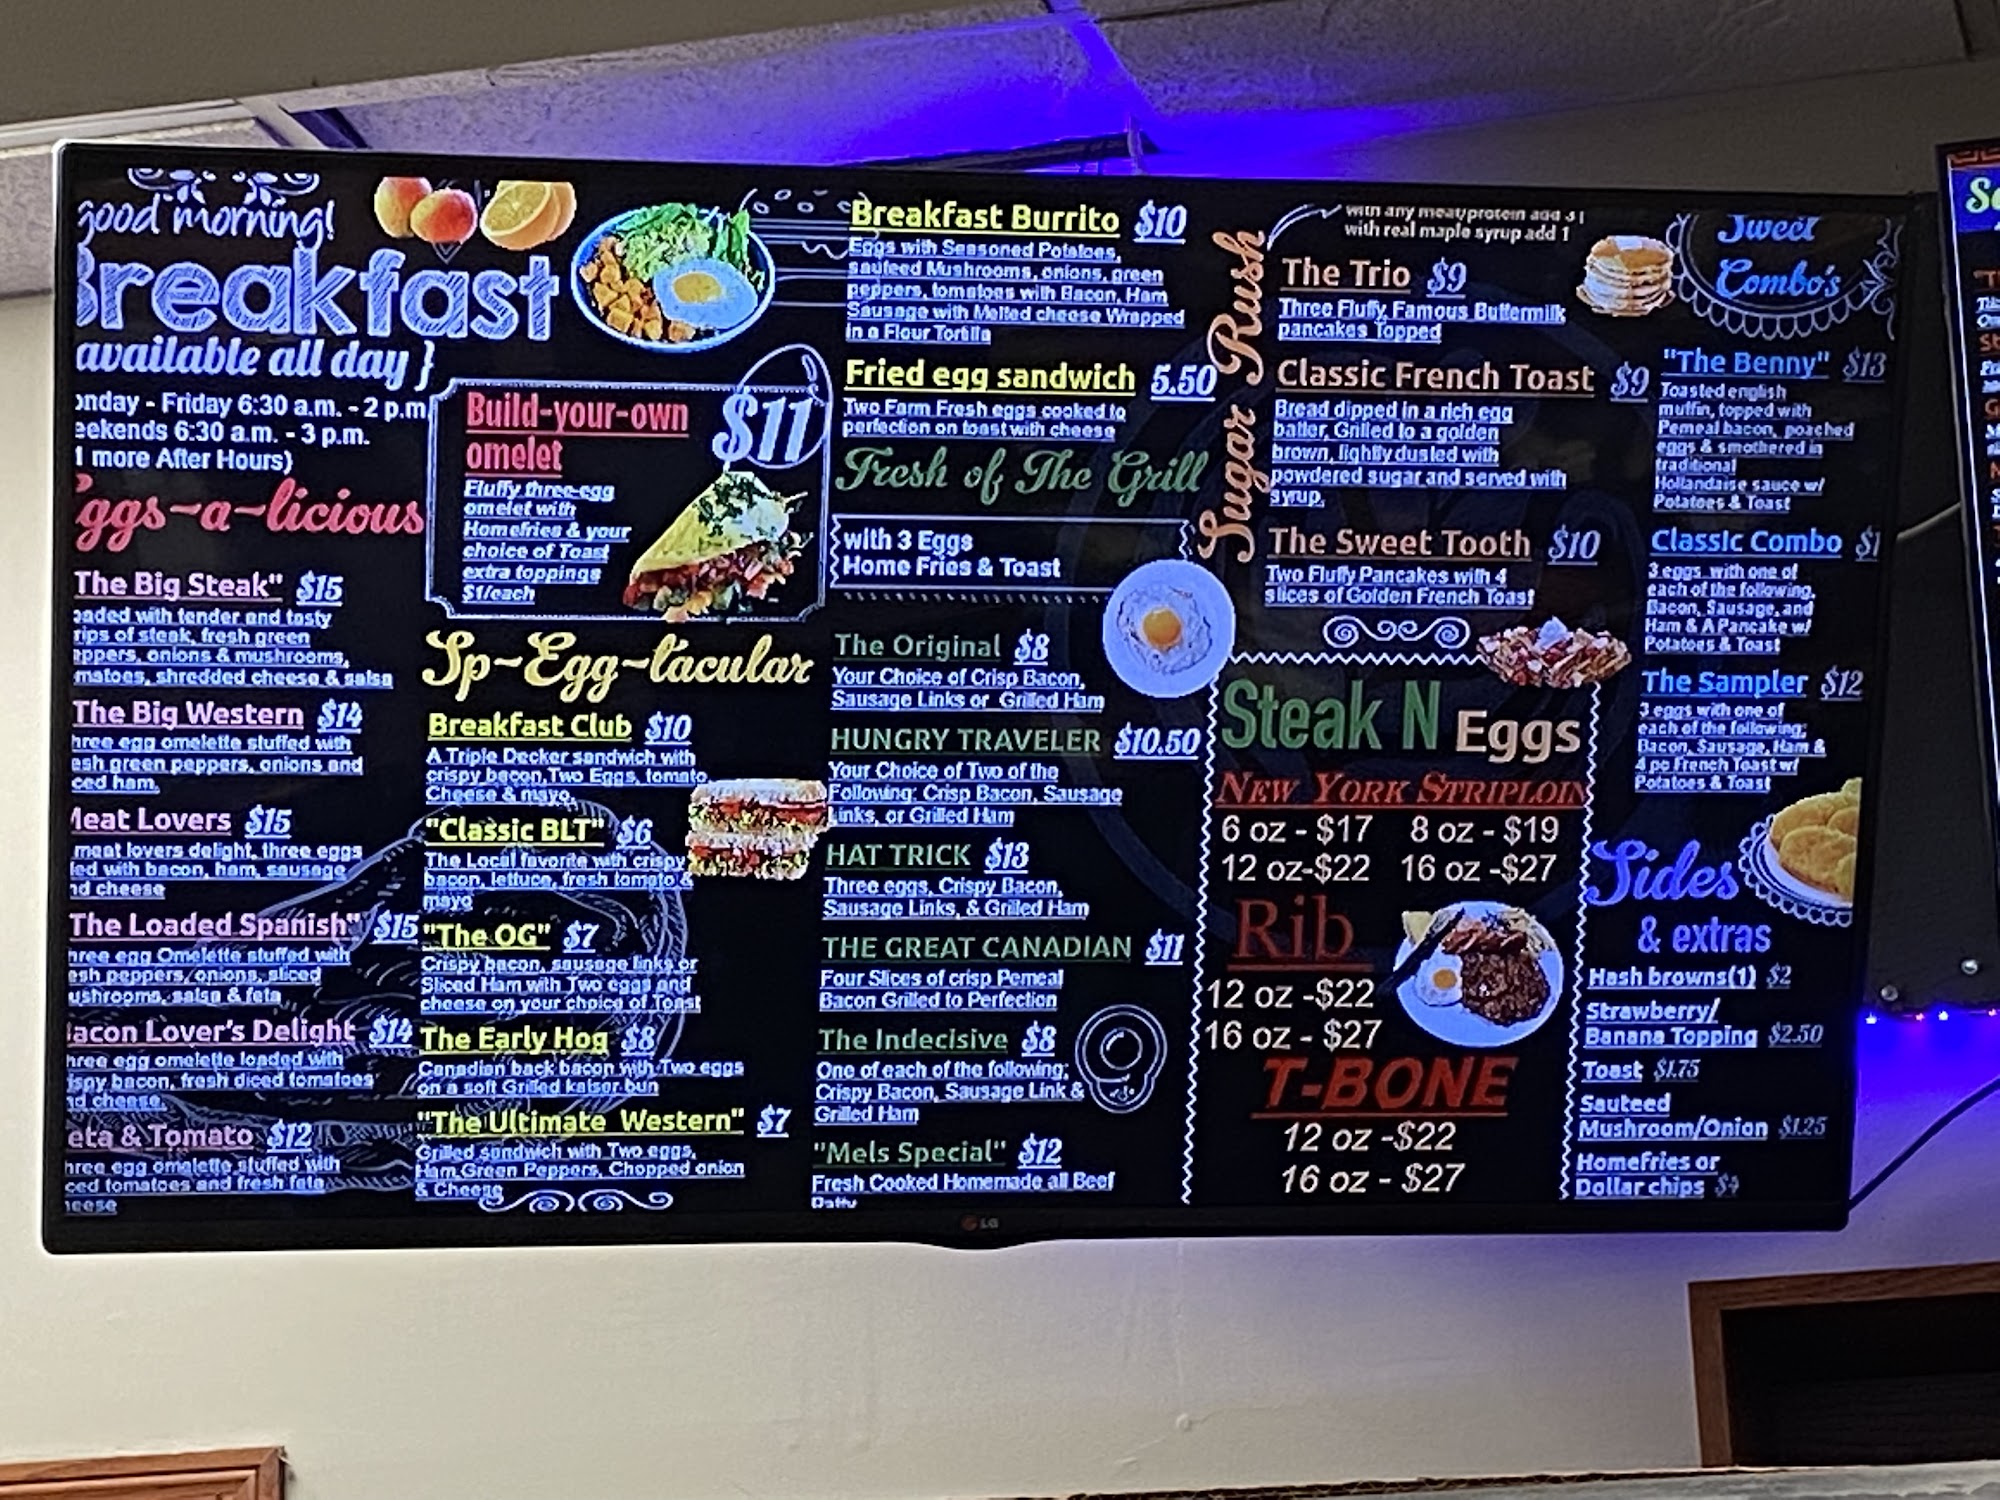 good morning!
Breakfast
available all day }
onday - Friday 6:30 a.m. - 2 p.m.
eekends 6:30 a.m. - 3 p.m.
more After Hours)
ggs-a-licious
The Big Steak" $15
oaded with tender and tasty
rips of steak, fresh green
eppers, onions & mushrooms,
matoes, shredded cheese & salsa
The Big Western $14
hree egg omelette stuffed with
esh green peppers, onions and
ced ham.
Meat Lovers $15
meat lovers delight, three eggs
led with bacon, ham, sausage
nd cheese
The Loaded Spanish" $15
hree egg Omelette stuffed with
esh peppers, onions, sliced
ushrooms, salsa & feta
acon Lover's Delight $14
hree egg omelette loaded with
ispy bacon, fresh diced tomatoes
nd cheese.
eta & Tomato $12
hree egg omelette stuffed with
ced tomatoes and fresh feta
heese
Build-your-own
omelet
$11
Fluffy three-egg
omelet with
Homefries & your
choice of Toast
extra toppings
$1/each
Sp-Egg-tacular
Breakfast Club $10
A Triple Decker sandwich with
crispy bacon,Two Eggs, tomato
Cheese & mayo,
"Classic BLT" $6
The Local favorite with crispy
bacon, lettuce, fresh tomato &
mayo
"The OG" $7
Crispy bacon, sausage links or
Sliced Ham with Two eggs and
cheese on your choice of Toast
The Early Hog $8
Canadian back bacon with Two eggs
on a soft Grilled kaiser bun
"The Ultimate Western" $7
Grilled sandwich with Two eggs,
Ham,Green Peppers, Chopped onion
& Cheese
Breakfast Burrito $10
Eggs with Seasoned Potatoes,
sauteed Mushrooms, onions, green
peppers, tomatoes with Bacon, Ham
Sausage with Melted cheese Wrapped
in a Flour Tortilla
Fried egg sandwich 5.50
Two Farm Fresh eggs cooked to
perfection on toast with cheese
Fresh of The Grill
with 3 Eggs
Home Fries & Toast
The Original $8
Your Choice of Crisp Bacon,
Sausage Links or Grilled Ham
HUNGRY TRAVELER $10.50
Your Choice of Two of the
Following: Crisp Bacon, Sausage
Links, or Grilled Ham
HAT TRICK $13
Three eggs, Crispy Bacon,
Sausage Links, & Grilled Ham
THE GREAT CANADIAN $11
Four Slices of crisp Pemeal
Bacon Grilled to Perfection
The Indecisive $8
One of each of the following;
Crispy Bacon, Sausage Link &
Grilled Ham
"Mels Special" $12
Fresh Cooked Homemade all Beef
Patty
Sugar Rush
with any meat/protein add 3 |
with real maple syrup add 1
The Trio $9
Three Fluffy Famous Buttermilk
pancakes Topped
Classic French Toast $9
Bread dipped in a rich egg
batter, Grilled to a golden
brown, lightly dusted with
powdered sugar and served with
syrup.
The Sweet Tooth $10
Two Fluffy Pancakes with 4
slices of Golden French Toast
Steak N Eggs
NEW YORK STRIPLOIN
6 oz - $17 8 oz - $19
12 oz-$22 16 oz -$27
Rib
12 oz -$22
16 oz - $27
T-BONE
12 oz -$22
16 oz - $27
Sweet
Combo's
"The Benny" $13
Toasted english
muffin, topped with
Pemeal bacon, poached
eggs & smothered in
traditional
Hollandaise sauce w/
Potatoes & Toast
Classic Combo $1
3 eggs with one of
each of the following,
Bacon, Sausage, and
Ham & A Pancake w/
Potatoes & Toast
The Sampler $12
3 eggs with one of
each of the following;
Bacon, Sausage, Ham &
4 pc French Toast w/
Potatoes & Toast
Sides
& extras
Hash browns(1) $2
Strawberry/
Banana Topping $2.50
Toast $1.75
Sauteed
Mushroom/Onion $1.25
Homefries or
Dollar chips $4
LG